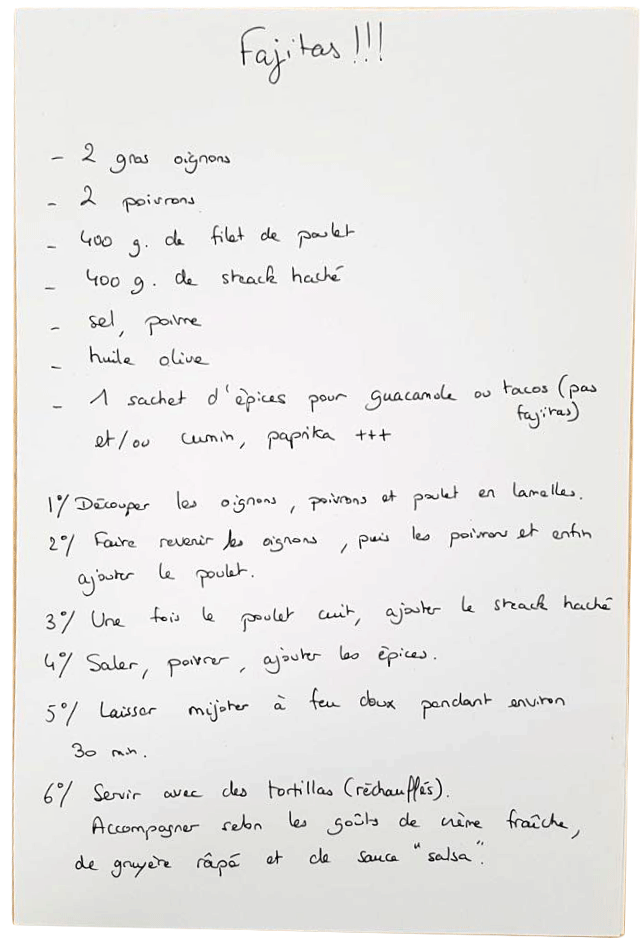 Fajitas !!!
- 2 gros oignons
- 2 poivrons
- 400 g. de filet de poulet
- 400 g. de steack haché
- sel, poivre
- huile olive
- 1 sachet d'épices pour guacamole ou tacos (pas
fajitas)
et/ou cumin, paprika +++
1°/ Découper les oignons, poivrons et poulet en lamelles.
2°/ Faire revenir les oignons, puis les poivrons et enfin
ajouter le poulet.
3°/ Une fois le poulet cuit, ajouter le steack haché
4°/ Saler, poivrer, ajouter les épices.
5°/ Laisser mijoter à feu doux pendant environ
30 min.
6°/ Servir avec des tortillas (réchauffés).
Accompagner selon les goûts de crème fraîche,
de gruyère râpé et de sauce "salsa".